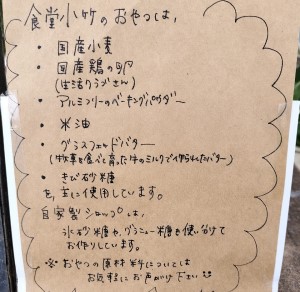 食堂小竹のおやつは、
・国産小麦
・国産鶏の卵
(生活クラブさん)
・アルミフリーのベーキングパウダー
・米油
・グラスフェッドバター
(牧草を食べて育った牛のミルクで作られたバター)
・きび砂糖
を、主に使用しています。
自家製シロップは、
氷砂糖や、グラニュー糖を使い分けて
お作りしています。
※おやつの原材料については
お気軽にお声がけ下さい